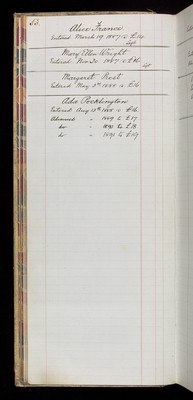 53.
Alice France
Entered March 19. 1887 @ £14
Left
Mary Ellen Wright
Entered Nov 30 1887 @ £16
Left
Margaret Rest
Entered May 3rd 1888 @ £16
Ada Pocklington
Entered Aug 15th 1888 @ £16
Advanced " 1889 to £17
do " 1890 to £18
do " 1891 to £19